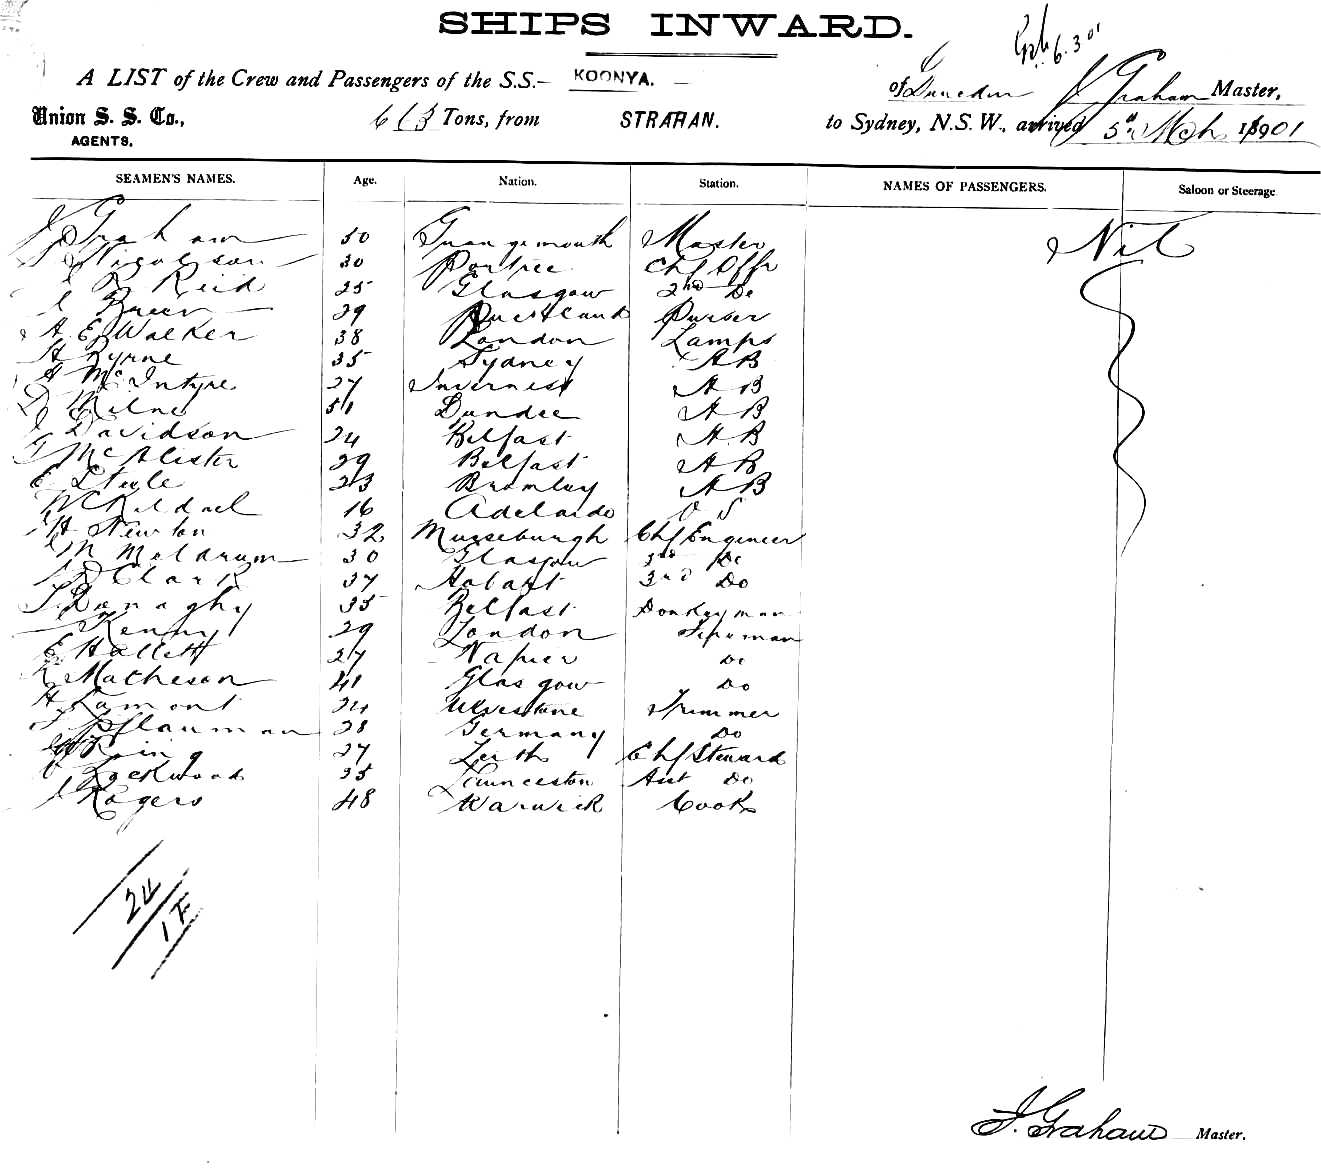 SHIPS INWARD.
6.3.01
A LIST of the Crew and Passengers of the S.S.— KOONYA. — of Dunedin J Graham Master,
Union S. S. Co., 613 Tons, from STRAHAN. to Sydney, N.S.W., arrived 5th Mch 1901
AGENTS.
SEAMEN'S NAMES. Age. Nation. Station. NAMES OF PASSENGERS. Saloon or Steerage
J Graham 50 Grangemouth Master Nil
Nicolson 30 Portree Chf Offr
Reid 25 Glasgow 2nd Do
29 Queensland Purser
A E Walker 38 London Lamps
H Byrne 35 Sydney A B
A McIntyre 27 Inverness A B
D Milne 51 Dundee A B
J Davidson 24 Belfast A B
McAlister 29 Belfast A B
E Steele 23 Bromley A B
W C 16 Adelaide O S
H Newton 32 Musselburgh Chf Engineer
M Meldrum 30 Glasgow Do
Clark 37 Hobart 3rd Do
Donaghy 35 Belfast Donkeyman
Kenny 29 London Fireman
E Hallett 27 Napier Do
K Matheson 41 Glasgow Do
H Lamont 24 Ulverstone Trimmer
Pflauman 28 Germany Do
Laing 27 Leith Chf Steward
Rockwood 35 Launceston Asst Do
J Rogers 48 Warwick Cook
24
J. Graham Master.